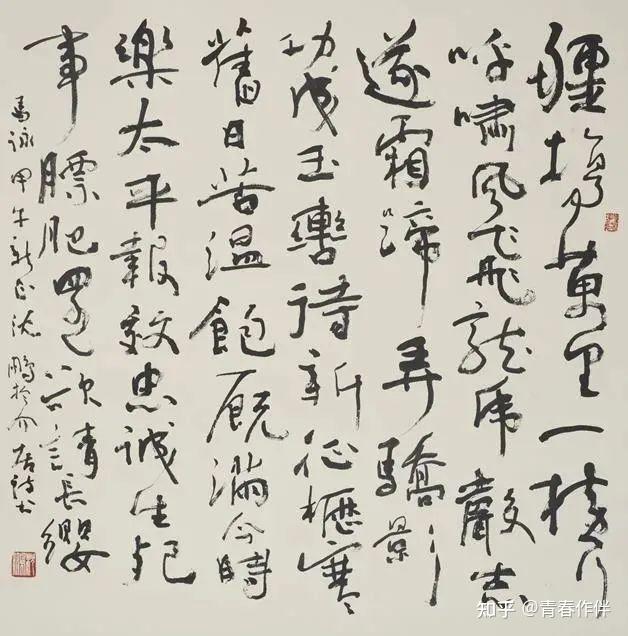 疆場萬里一横行
呼嘯風飛龍虎聲志
遂霜蹄弄驕影
功成玉轡待新征櫪寒
舊日苦溫飽厩滿今時
樂太平報效忠誠生死
事膘肥欲請長纓
馬詠 甲午新正沈鵬於介居詩書
知乎 @青春作伴